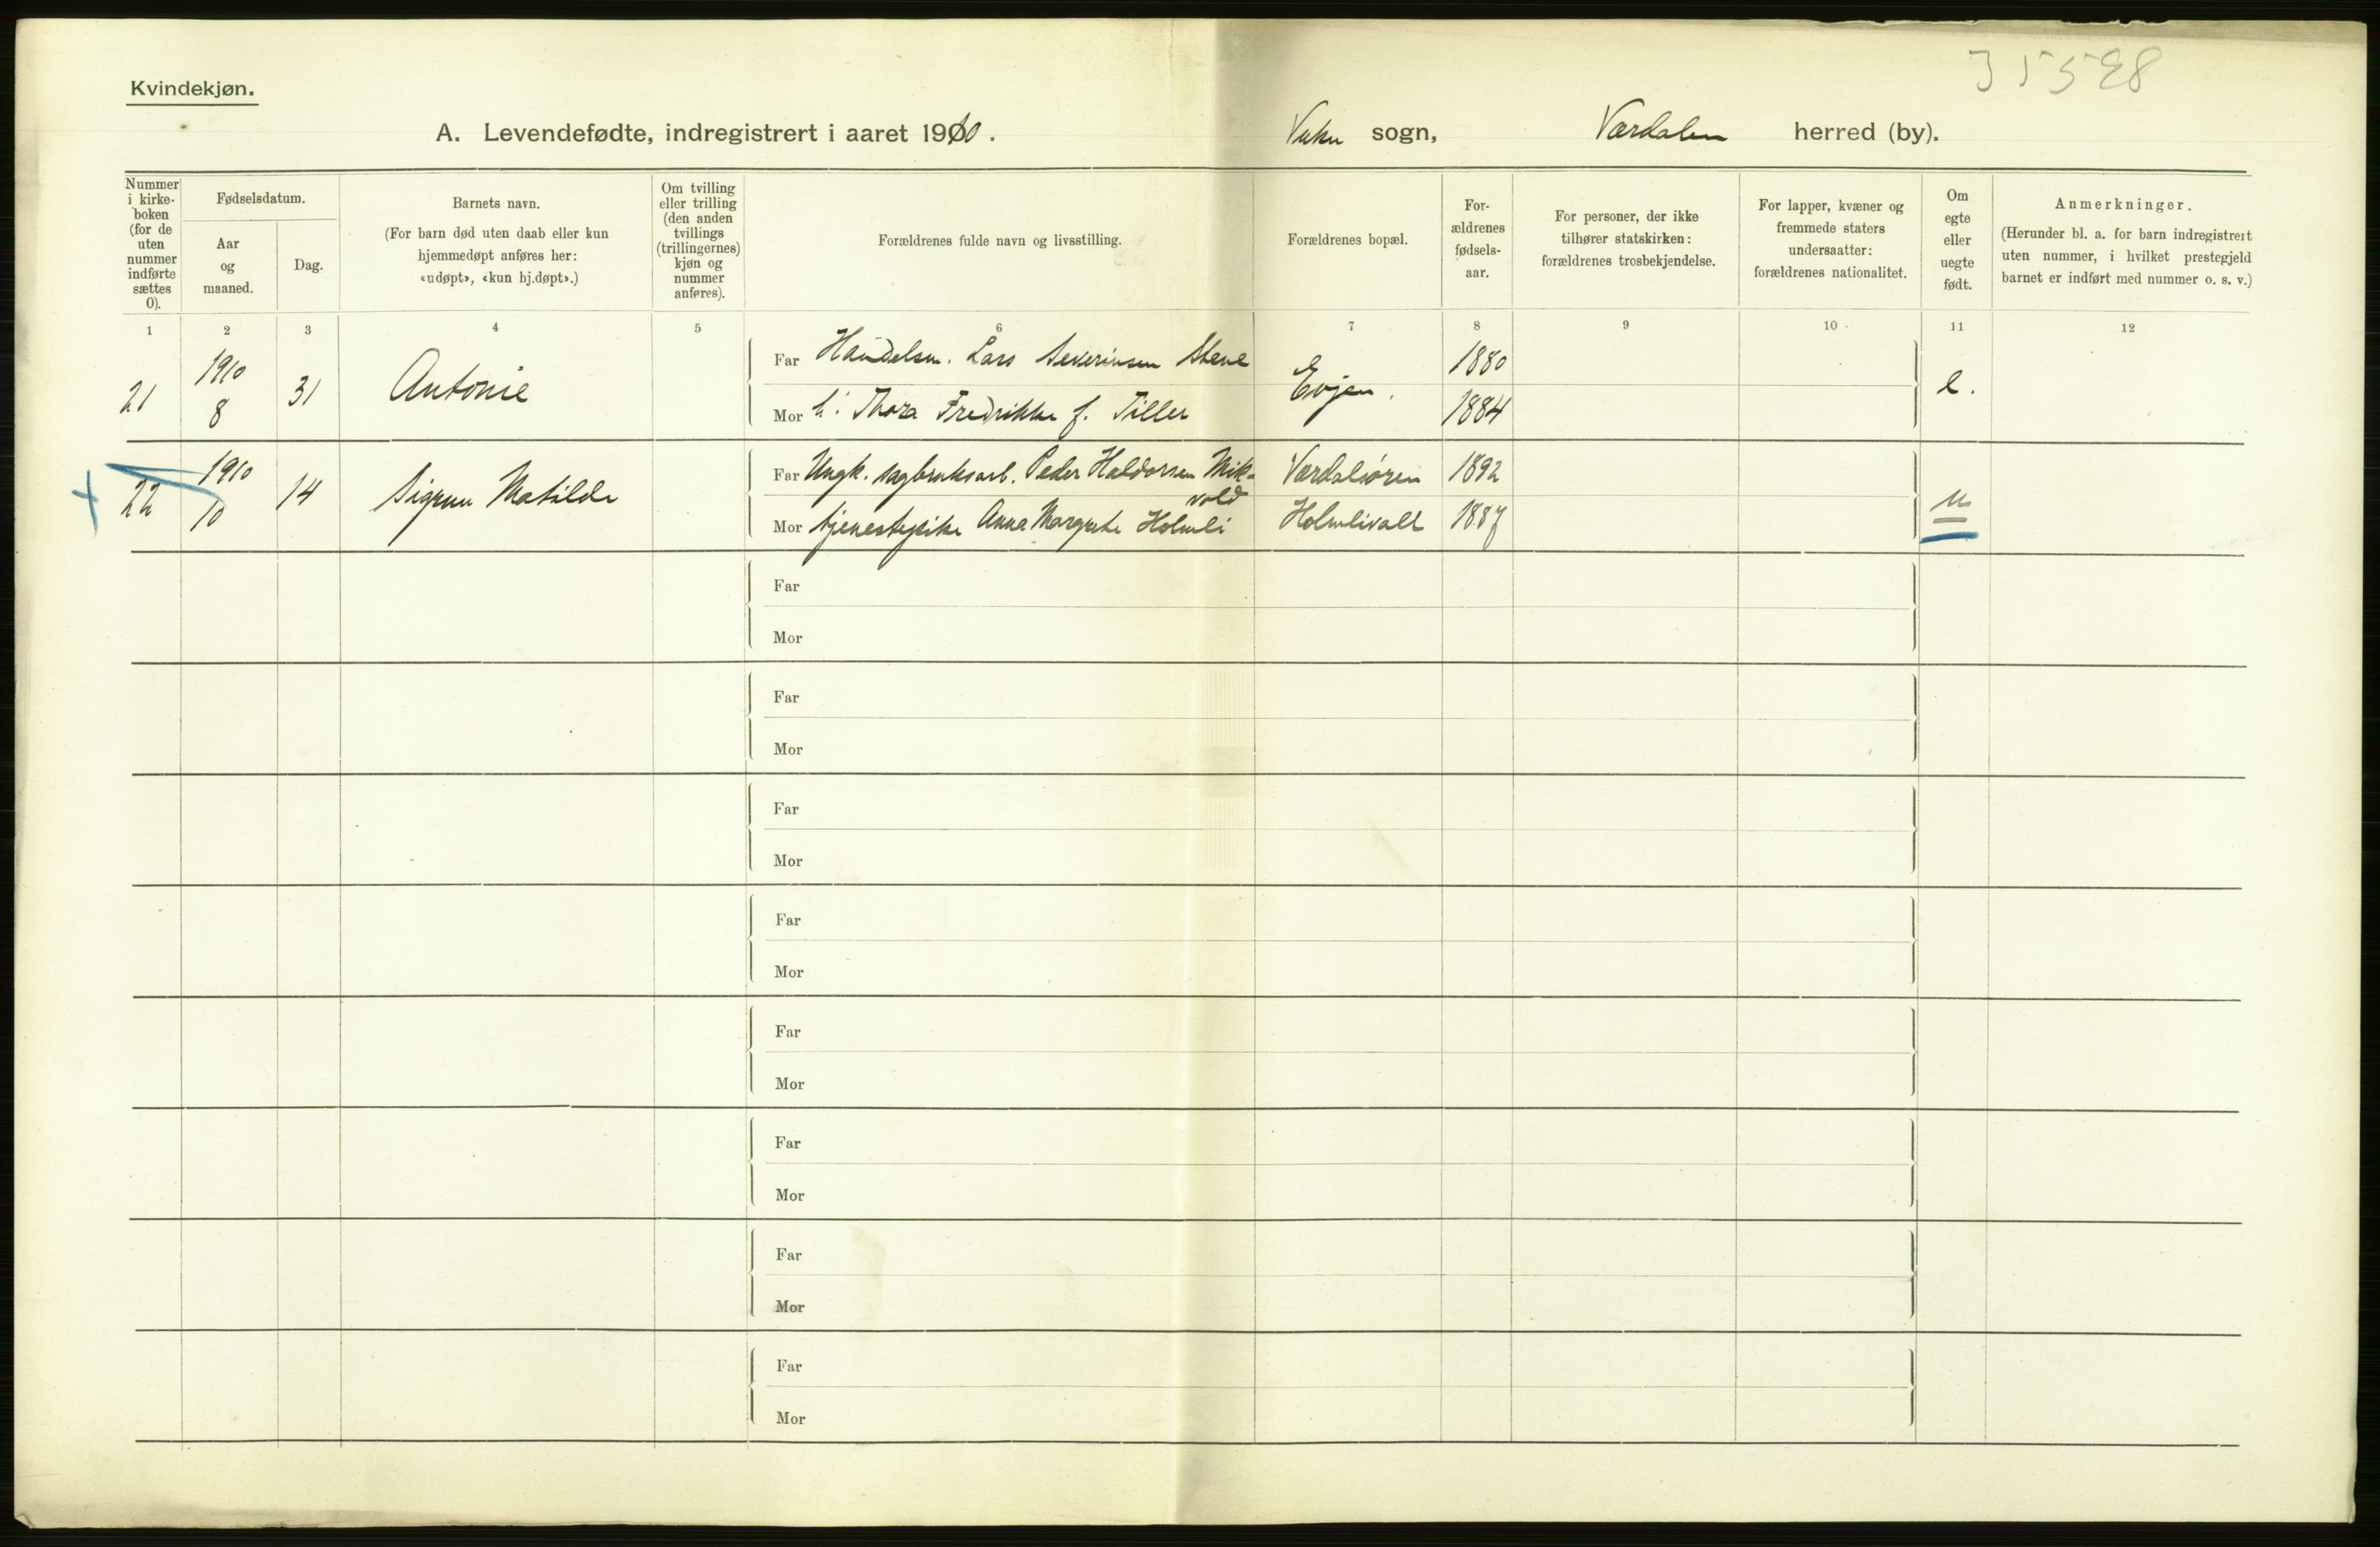 35598
Kvindekjøn.
A. Levendefødte, indregistrert i aaret 1910. Vuku sogn, Værdalen herred (by).
Nummer i kirke-boken (for de uten nummer indførte sættes 0).
Fødselsdatum.
Aar og maaned.
Dag.
Barnets navn.
(For barn død uten daab eller kun hjemmedøpt anføres her: «udøpt», «kun hj.døpt».)
Om tvilling eller trilling (den anden tvillings (trillingernes) kjøn og nummer anføres).
Forældrenes fulde navn og livsstilling.
Forældrenes bopæl.
For-ældrenes fødsels-aar.
For personer, der ikke tilhører statskirken: forældrenes trosbekjendelse.
For lapper, kvæner og fremmede staters undersaatter: forældrenes nationalitet.
Om egte eller uegte født.
Anmerkninger.
(Herunder bl. a. for barn indregistrert uten nummer, i hvilket prestegjeld barnet er indført med nummer o. s. v.)
1 2 3 4 5 6 7 8 9 10 11 12
21 1910 8 31 Antonie
Far Handelsm. Lars Severinsen Stene Evjen. 1880
Mor h. Thora Fredrikke f. Tiller 1884 e.
22 1910 10 14 Sigrun Matilde
Far Ungk. sagbruksarb. Peder Haldorsen Mik-vold Værdalsøren 1892
Mor tjenestepike Anna Margrete Holmli Holmlivall 1887 u
Far
Mor
Far
Mor
Far
Mor
Far
Mor
Far
Mor
Far
Mor
Far
Mor
Far
Mor